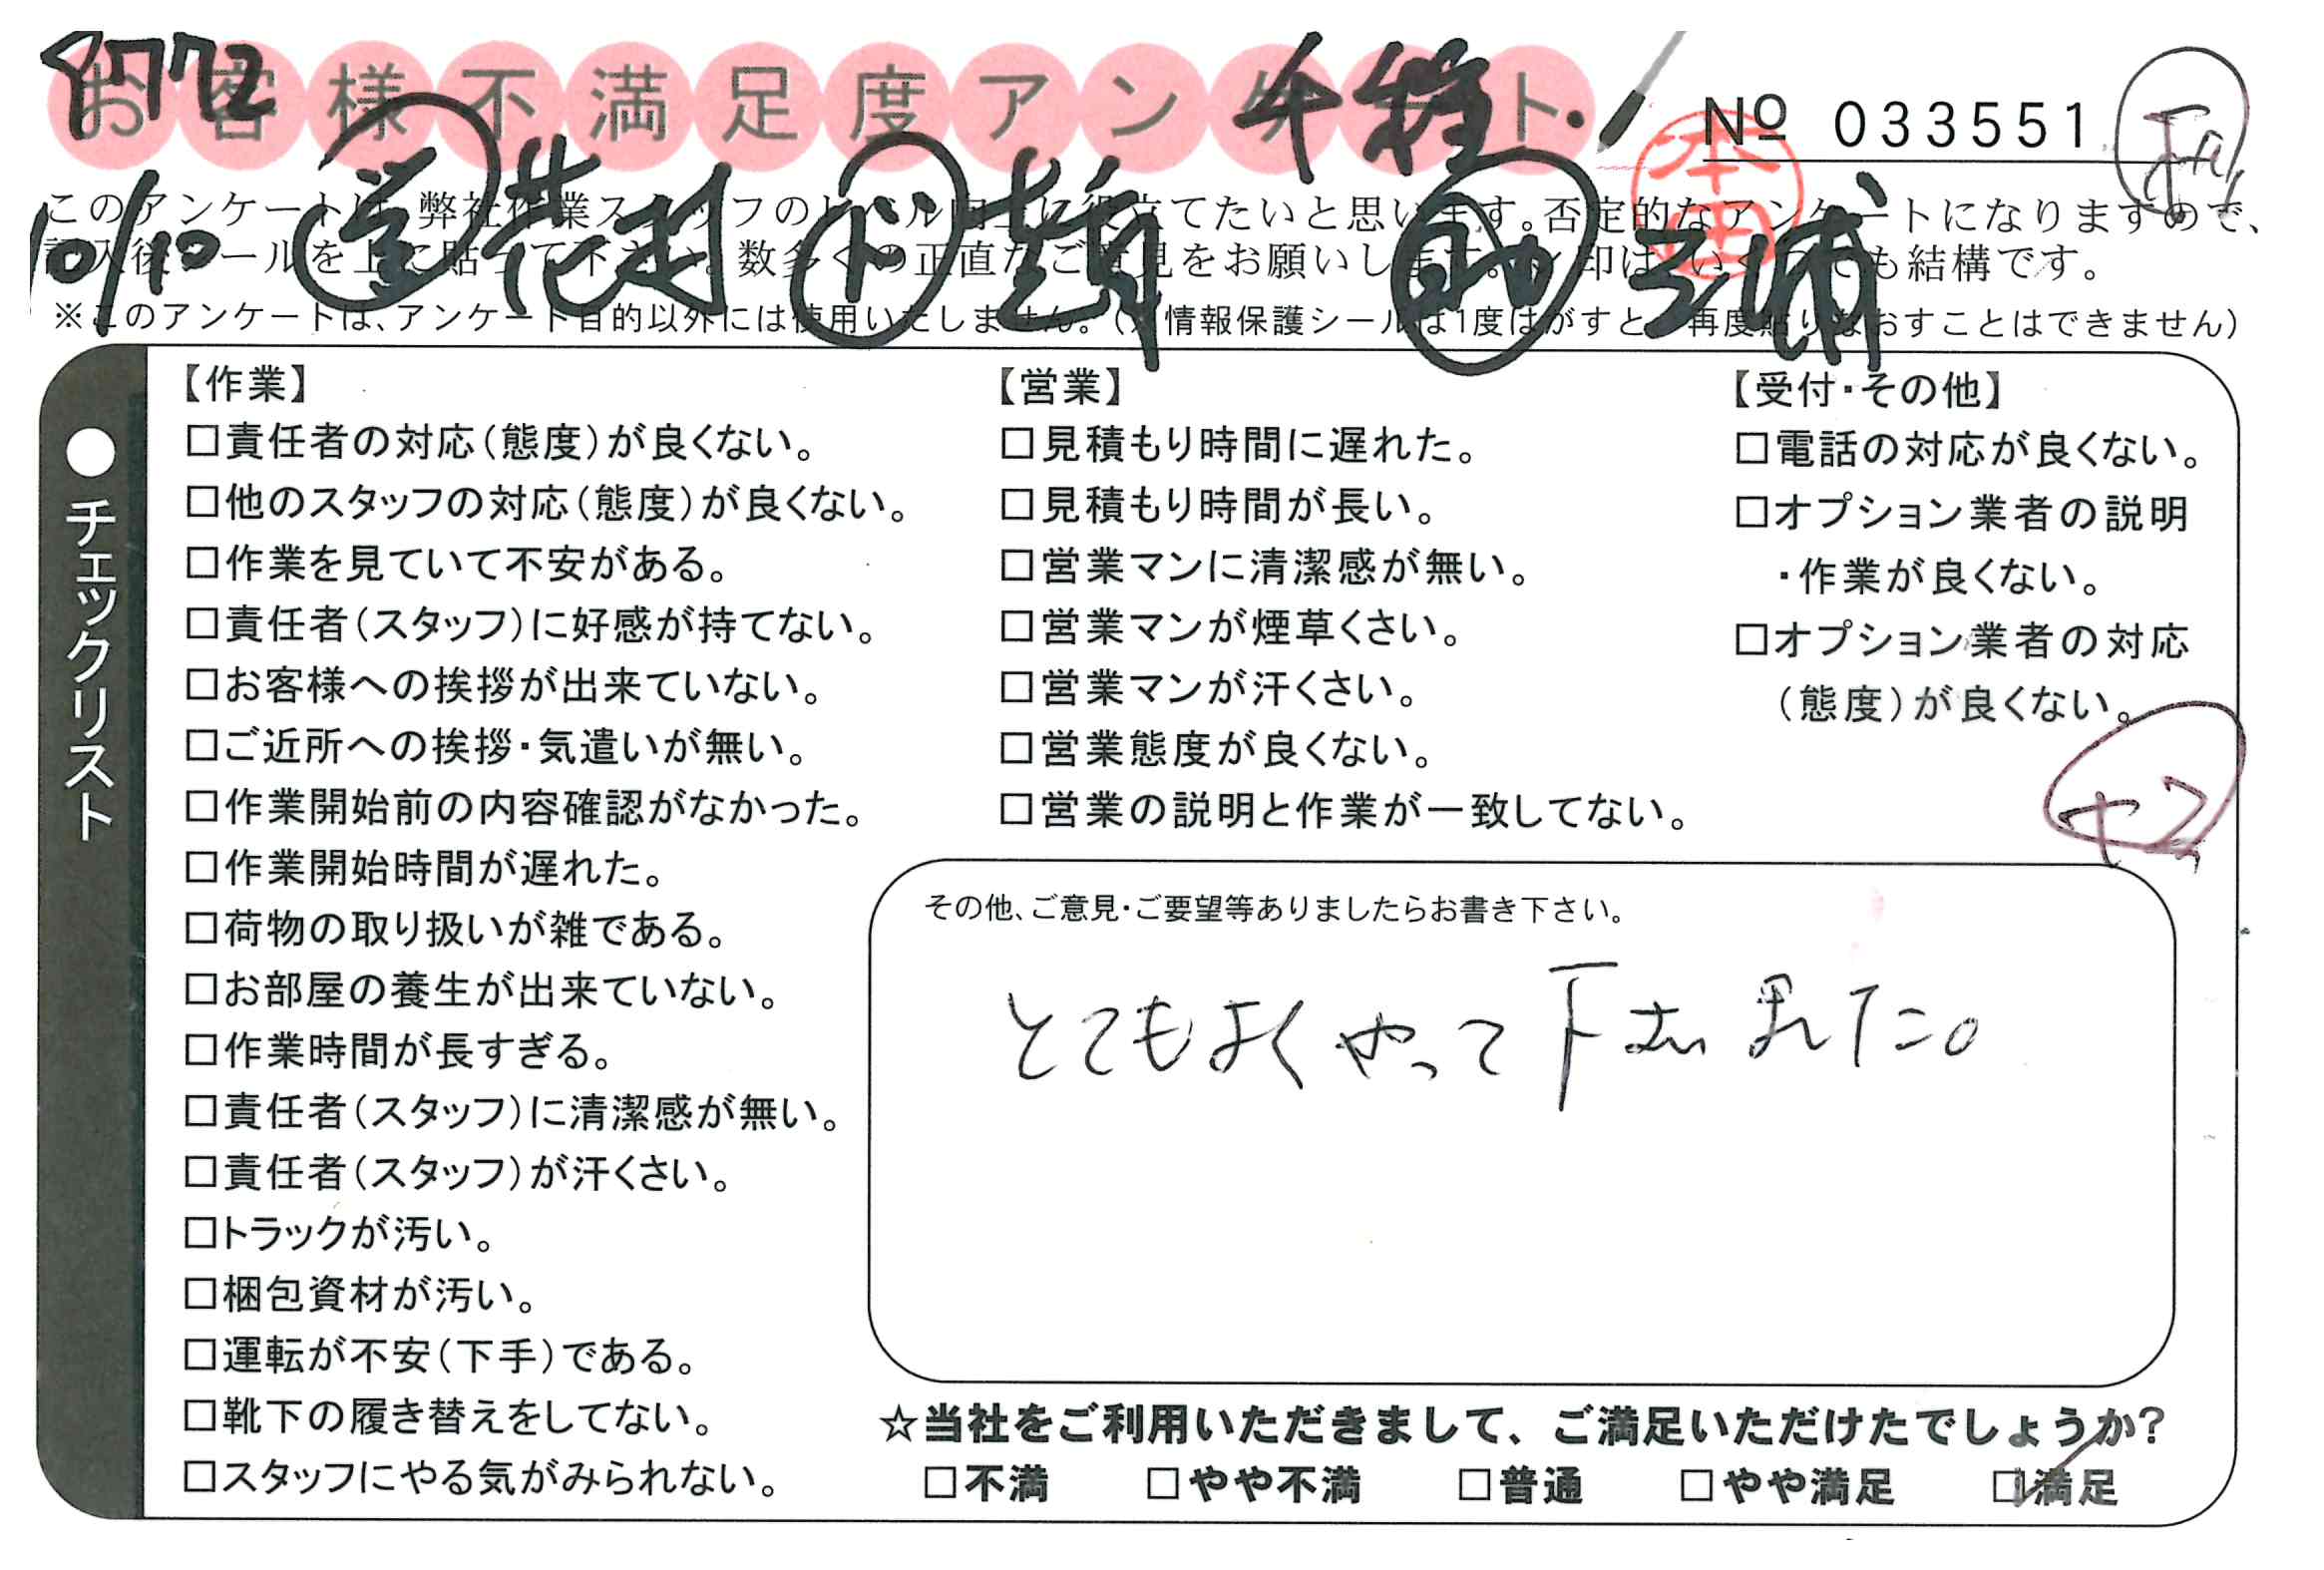 8772
お客様不満足度アンケート
千種
No 033551
本田
10/10 営 花村 ド 哲 助
このアンケートは、弊社作業スタッフのレベル向上に役立てたいと思います。否定的なアンケートになりますので、
記入後シールを上に貼って下さい。数多くの正直なご意見をお願いします。レ印はいくつでも結構です。
※このアンケートは、アンケート目的以外には使用いたしません。(※情報保護シールは1度はがすと、再度貼りなおすことはできません)
●チェックリスト
【作業】
□責任者の対応(態度)が良くない。
□他のスタッフの対応(態度)が良くない。
□作業を見ていて不安がある。
□責任者(スタッフ)に好感が持てない。
□お客様への挨拶が出来ていない。
□ご近所への挨拶・気遣いが無い。
□作業開始前の内容確認がなかった。
□作業開始時間が遅れた。
□荷物の取り扱いが雑である。
□お部屋の養生が出来ていない。
□作業時間が長すぎる。
□責任者(スタッフ)に清潔感が無い。
□責任者(スタッフ)が汗くさい。
□トラックが汚い。
□梱包資材が汚い。
□運転が不安(下手)である。
□靴下の履き替えをしてない。
□スタッフにやる気がみられない。
【営業】
□見積もり時間に遅れた。
□見積もり時間が長い。
□営業マンに清潔感が無い。
□営業マンが煙草くさい。
□営業マンが汗くさい。
□営業態度が良くない。
□営業の説明と作業が一致してない。
【受付・その他】
□電話の対応が良くない。
□オプション業者の説明
・作業が良くない。
□オプション業者の対応
(態度)が良くない。
その他、ご意見・ご要望等ありましたらお書き下さい。
とてもよくやって下さいました。
☆当社をご利用いただきまして、ご満足いただけたでしょうか?
□不満 □やや不満 □普通 □やや満足 ☑満足